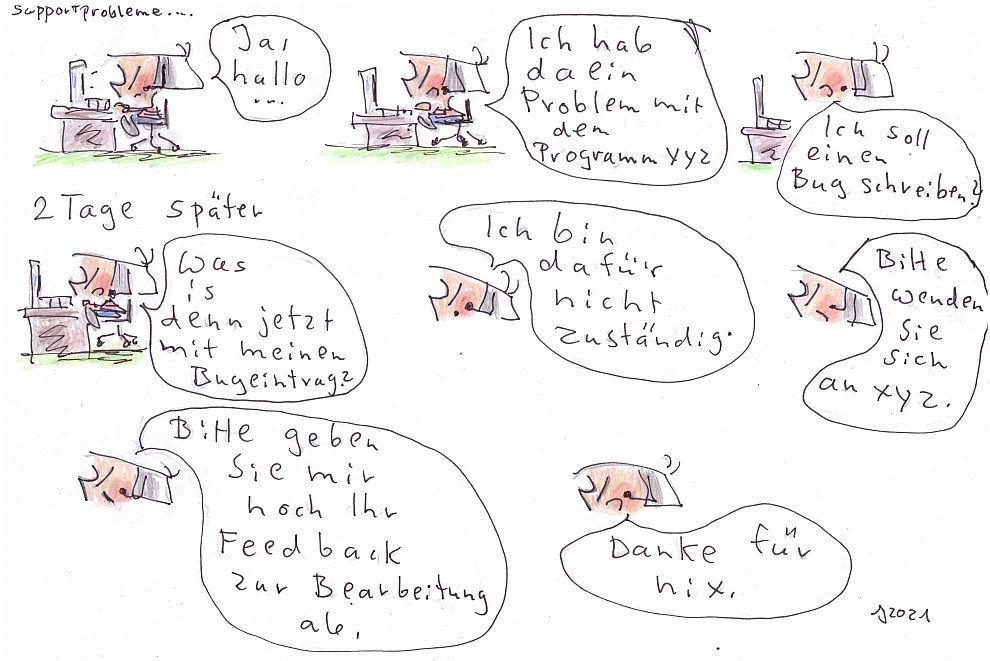 Supportprobleme....
Ja,
hallo
...
Ich hab
da ein
Problem mit
dem
Programm XYZ
Ich soll
einen
Bug schreiben?
2 Tage später
Was
is
denn jetzt
mit meinen
Bugeintrag?
Ich bin
dafür
nicht
zuständig.
Bitte
wenden
Sie
sich
an XYZ.
Bitte geben
Sie mir
noch Ihr
Feedback
zur Bearbeitung
ab.
Danke für
nix.
2021